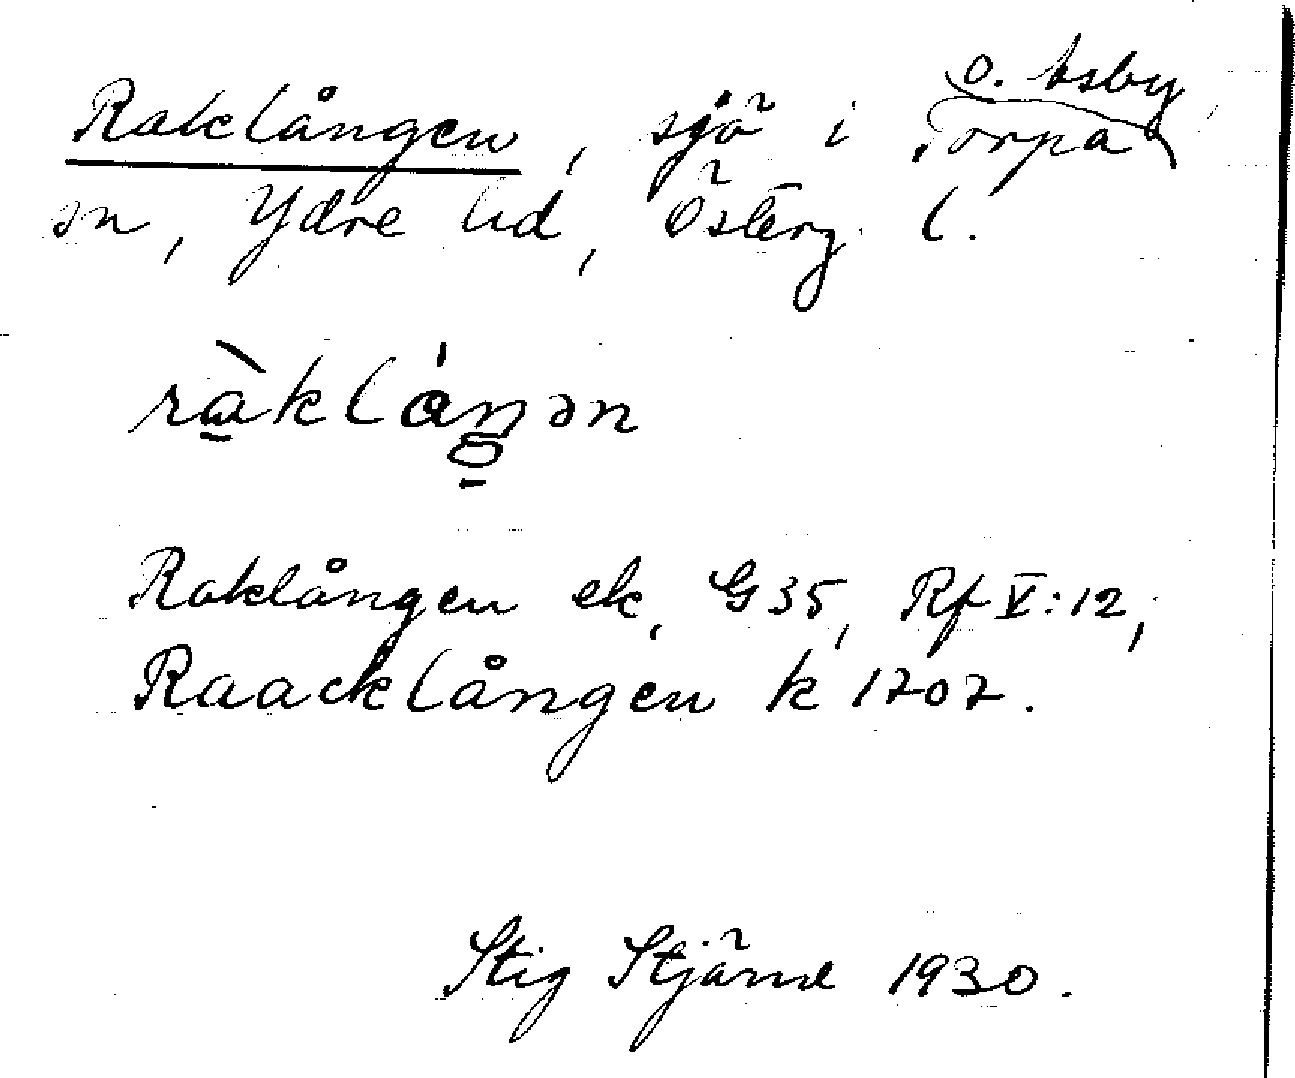 o. Asby
Raklången, sjö i Torpa
sn, Ydre hd, Österg. l.
ràklåŋən
Raklången ek, G35, Rf V:12,
Raacklången k 1707.
Stig Stjärne 1930.